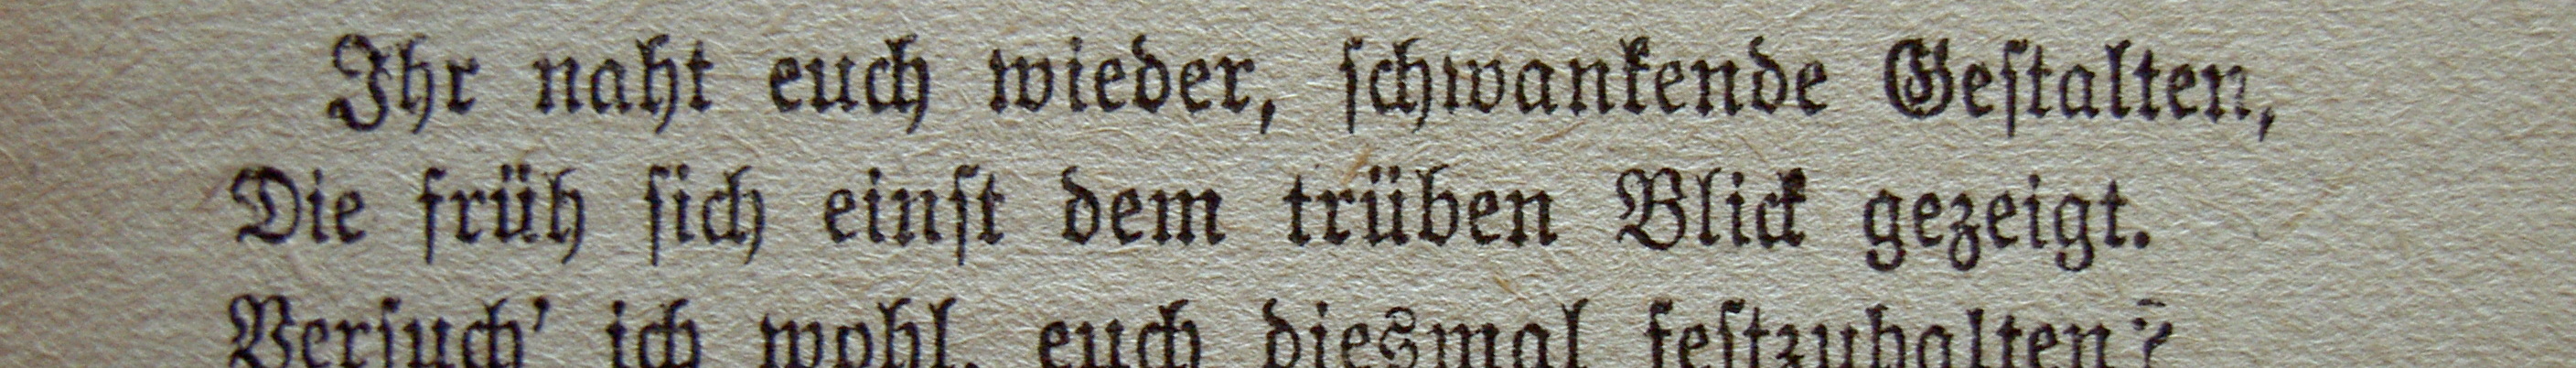 Ihr naht euch wieder, ſchwankende Geſtalten,
Die früh ſich einſt dem trüben Blick gezeigt.
Verſuch' ich wohl, euch diesmal feſtzuhalten?